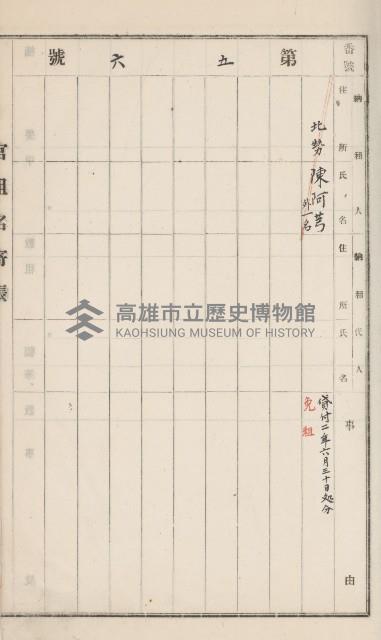 第五六號
番號
納租人住所氏名
納租代人住所氏名
事由
北勢 陳阿芎
外一名
貸付二年六月三十日処分
免租
官租名寄帳
高雄市立歷史博物館
KAOHSIUNG MUSEUM OF HISTORY